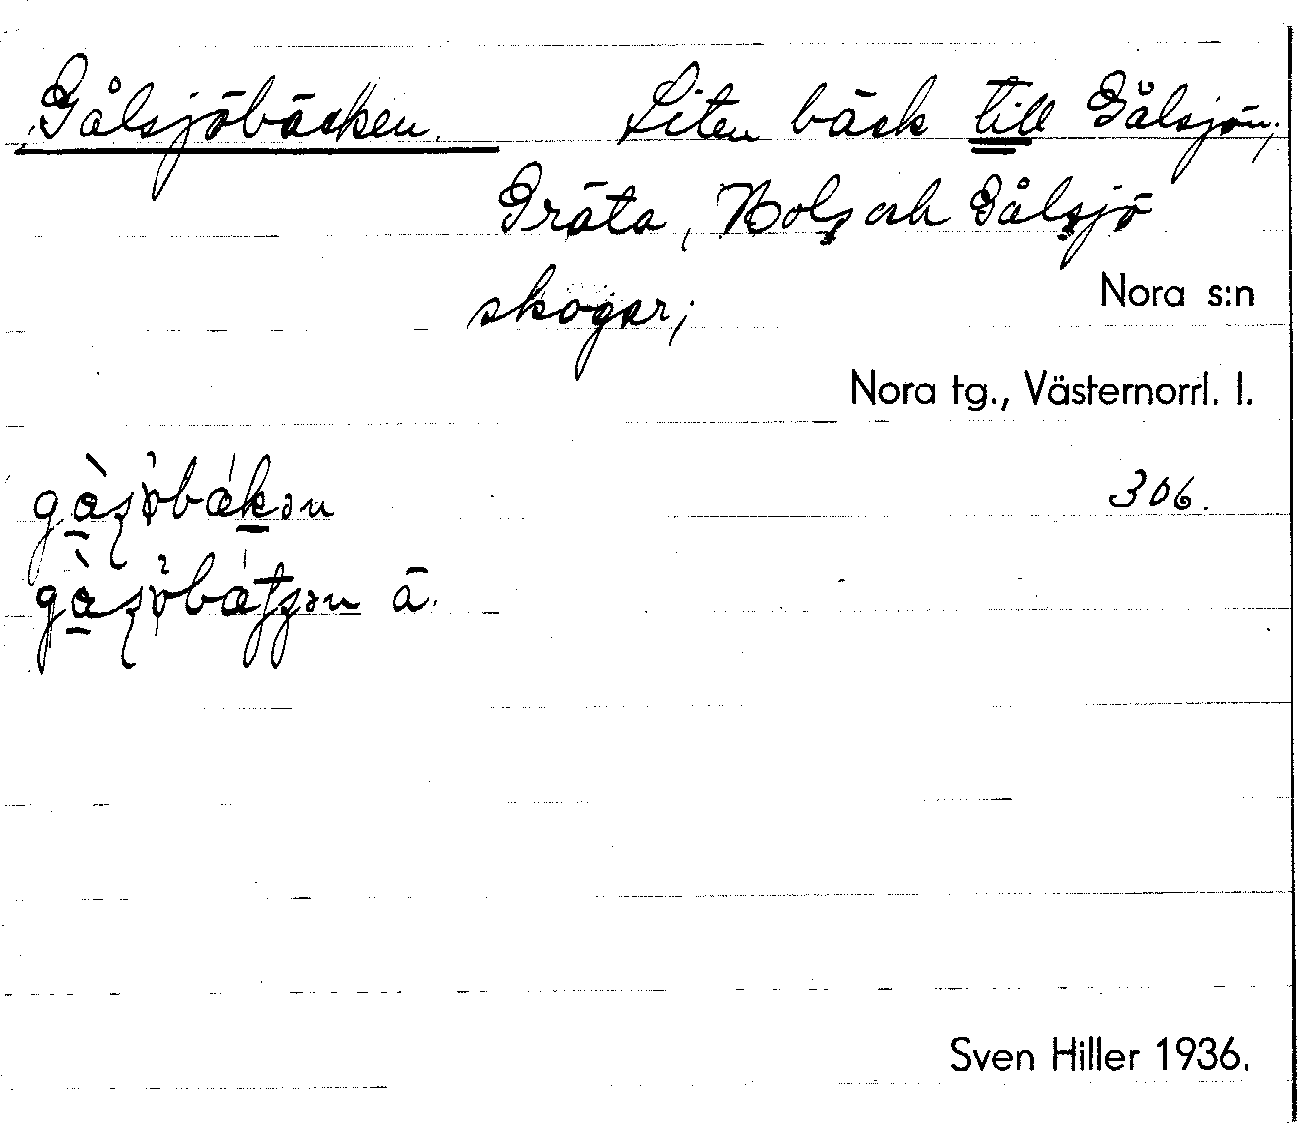 Gålsjöbäcken. Liten bäck till Gålsjön,
Gräta, Nols och Gålsjö
skogar;
Nora s:n
Nora tg., Västernorrl. l.
306.
ä.
Sven Hiller 1936.